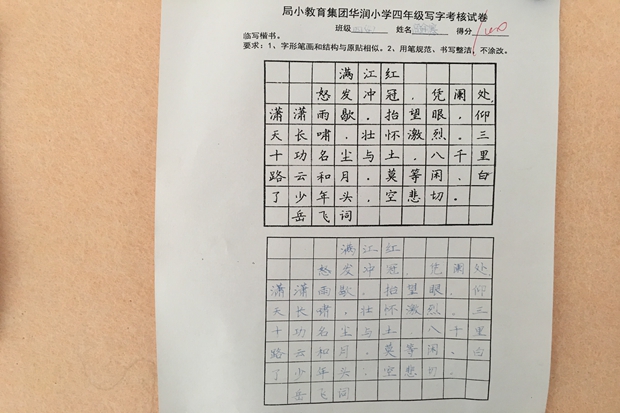 局小教育集团华润小学四年级写字考核试卷
班级 姓名 得分 100
临写楷书。
要求：1、字形笔画和结构与原贴相似。2、用笔规范、书写整洁，不涂改。
满江红
怒发冲冠，凭阑处，
潇潇雨歇。抬望眼，仰
天长啸，壮怀激烈。三
十功名尘与土，八千里
路云和月。莫等闲，白
了少年头，空悲切。
岳飞词
满江红
怒发冲冠，凭阑处
潇潇雨歇。抬望眼，仰
天长啸，壮怀激烈。三
十功名尘与土，八千里
路云和月。莫等闲，白
了少年头，空悲切。
岳飞词